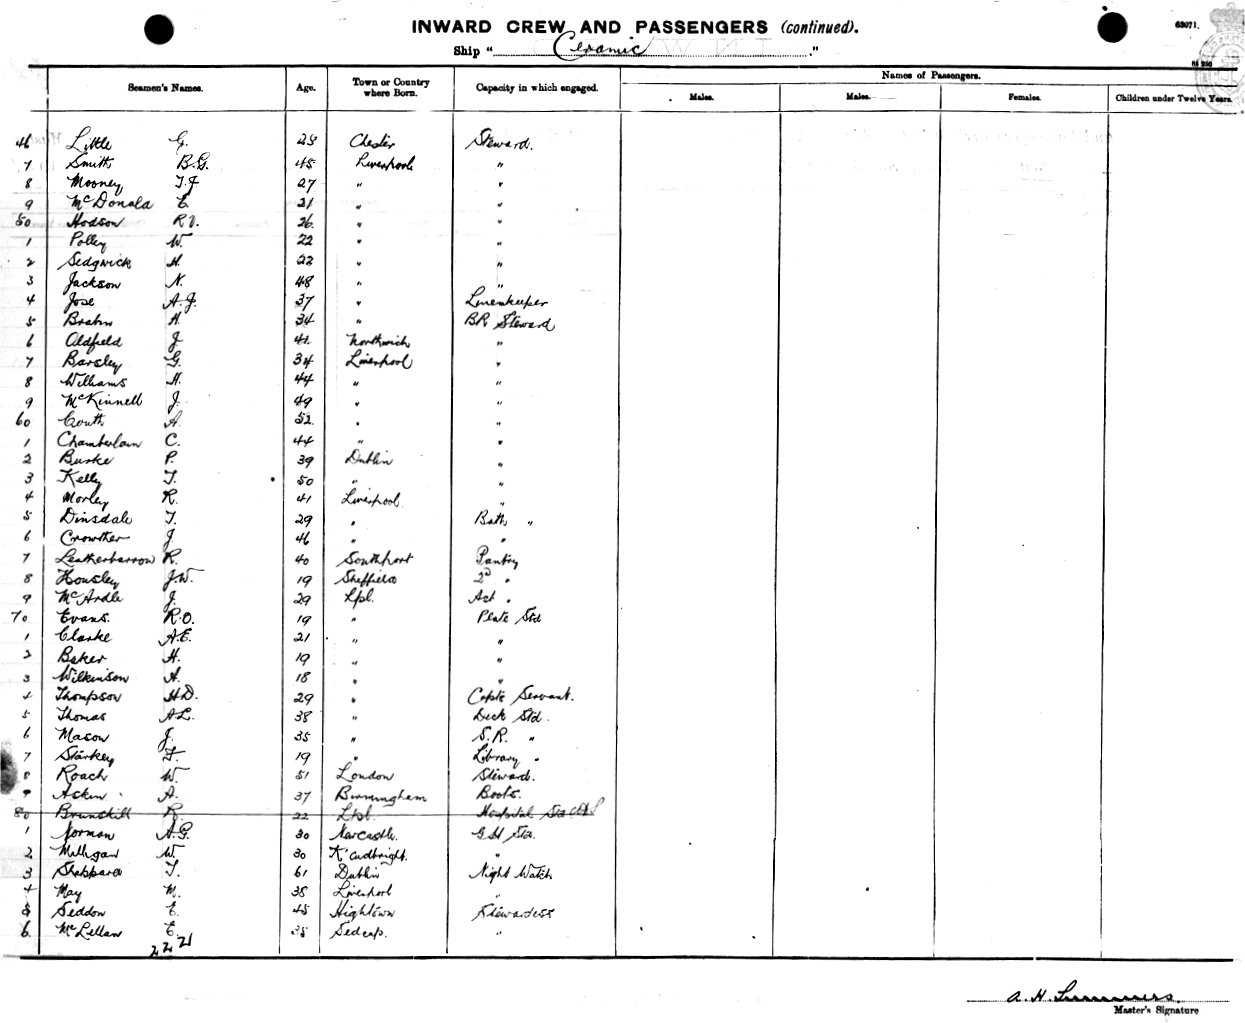 INWARD CREW AND PASSENGERS (continued).
63071.
Ship "Ceramic"
Seamen's Names. Age. Town or Country where Born. Capacity in which engaged. Names of Passengers.
Males. Males. Females. Children under Twelve Years.
46 Little G. Chester Steward.
7 Smith B.G. 45 Liverpool "
8 Mooney T.J 27 " "
9 McDonald E. 21 " "
50 Hodson R.V. 26 " "
1 Polley W. 22 " "
2 Sedgwick H. 22 " "
3 Jackson N. 48 " "
4 Jose A.J. 37 " Linenkeeper
5 Brahn H. 34 " BR Steward
6 Oldfield J. Northwich "
7 Barsley G. 34 Liverpool "
8 Williams H. 44 " "
9 McKinnell J. 49 " "
60 Couth A. 52 " "
1 Chamberlain C. 44 " "
2 Burke P. 39 Dublin "
3 Kelly T. 50 " "
4 Morley R. 41 Liverpool "
5 Dinsdale T. 29 " Bath "
6 Crowther J. 46 " "
7 Leatherbarrow R. 40 Southport Pantry
8 Housley J.W. 19 Sheffield 2d "
9 McArdle J. 29 Lpl. Ast "
70 Evans. R.O. 19 " Plate Std
1 Clarke A.E. 21 " "
2 Baker H. 19 " "
3 Wilkinson A. 18 " "
4 Thompson H.D. 29 " Capts Servant.
5 Thomas A.L. 38 " Deck Std.
6 Mason J. 35 " S.R. "
7 Starkey F. 19 " Library "
8 Roach W. 51 London Steward.
9 Askin A. 37 Birmingham Boots.
80 Brunskill R. 22 Lpl. Hospital Std
1 Norman A.G. 30 Newcastle. G H Std.
2 Milligan W. 30 K'cudbright. "
3 Sheppard T. 61 Dublin Night Watch
4 May M. 38 Liverpool "
5 Seddon E. 45 Hightown Stewardess
6 McLellan E. 35 "
A. H. Summers
Master's Signature